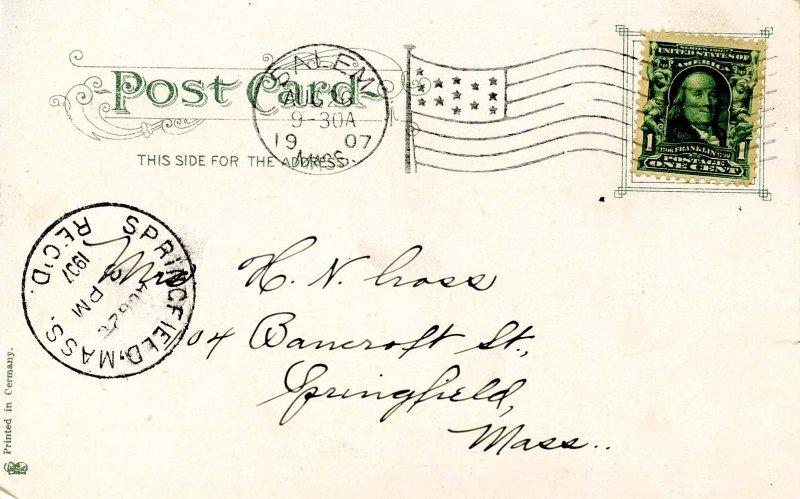 Post Card
THIS SIDE FOR THE ADDRESS.
SALEM
AUG 26
9-30A
1907
MASS.
SERIES 1902
UNITED STATES OF AMERICA
1706 FRANKLIN 1790
POSTAGE
1 ONE CENT 1
SPRINGFIELD, MASS.
REC'D.
1907
PM
Mrs H. N. Cross
04 Bancroft St.,
Springfield,
Mass..
Printed in Germany.